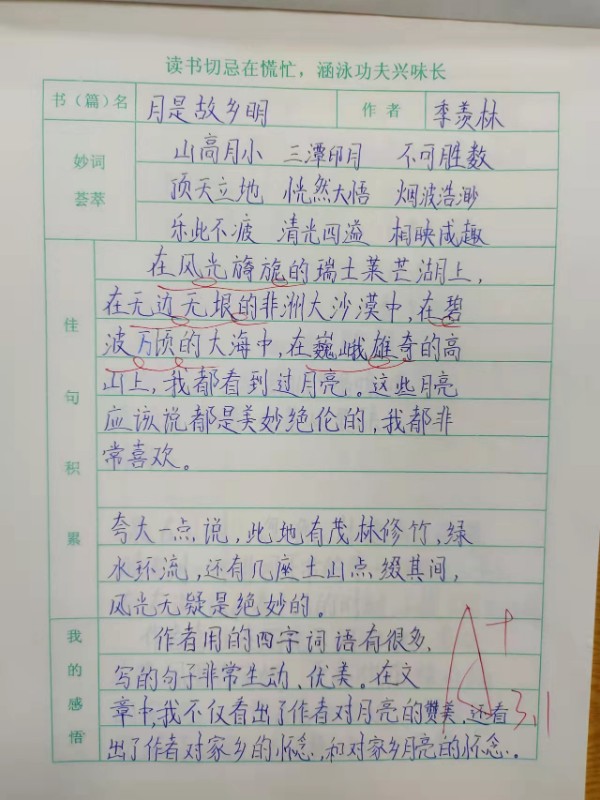 读书切忌在慌忙，涵泳功夫兴味长
书（篇）名 月是故乡明 作者 季羡林
妙词荟萃
山高月小 三潭印月 不可胜数
顶天立地 恍然大悟 烟波浩渺
乐此不疲 清光四溢 相映成趣
佳句积累
在风光旖旎的瑞士莱芒湖上，
在无边无垠的非洲大沙漠中，在碧
波万顷的大海中，在巍峨雄奇的高
山上，我都看到过月亮。这些月亮
应该说都是美妙绝伦的，我都非
常喜欢。
夸大一点说，此地有茂林修竹，绿
水环流，还有几座土山点缀其间，
风光无疑是绝妙的。
我的感悟
作者用的四字词语有很多，
写的句子非常生动、优美。在文
章中，我不仅看出了作者对月亮的赞美，还看
出了作者对家乡的怀念，和对家乡月亮的怀念。
A+
3.1